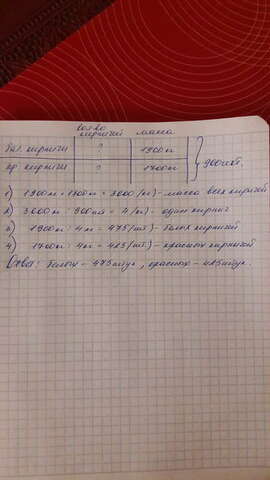 кол-во кирпичей масса
бел. кирпичи ? 1900 кг
кр. кирпичи ? 1700 кг } 900 шт.
1) 1900 + 1700 = 3600 (кг) - масса всех кирпичей
2) 3600 : 900 = 4 (кг) - один кирпич
3) 1900 : 4 = 475 (шт.) - белых кирпичей
4) 1700 : 4 = 425 (шт.) - красных кирпичей
Ответ: белых - 475 штук, красных - 425 штук.